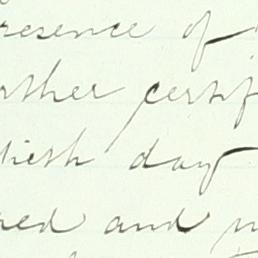 resence of
rther certif
tieth day
red and